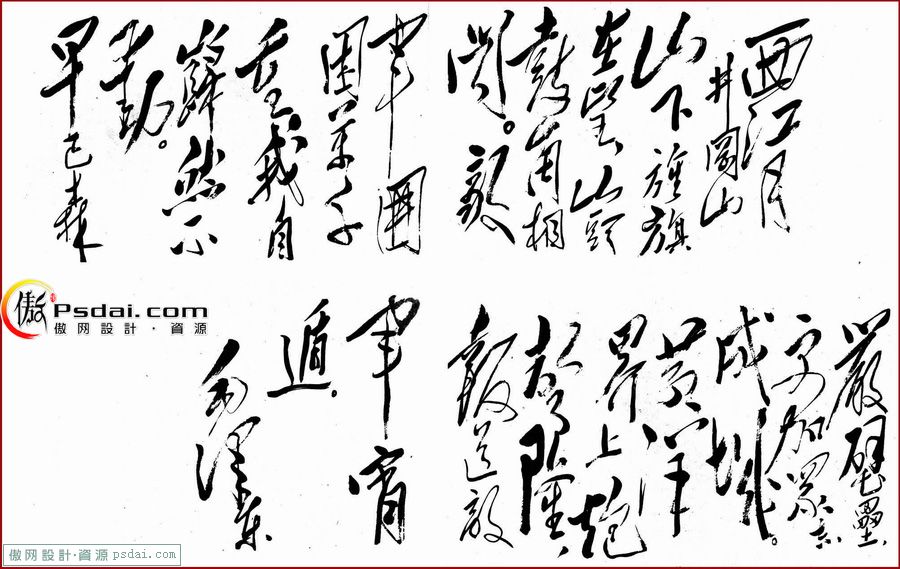 西江月
井岡山
山下旌旗
在望山頭
鼓角相
闻。敵
軍圍
困万千
重我自
巋然不
動。
早已森
嚴壁壘、
更加眾志
成城。
黄洋
界上炮
声隆、
報道敵
軍宵
遁。
毛澤東
傲 Psdai.com
傲网設計·資源
傲网設計·資源 psdai.com